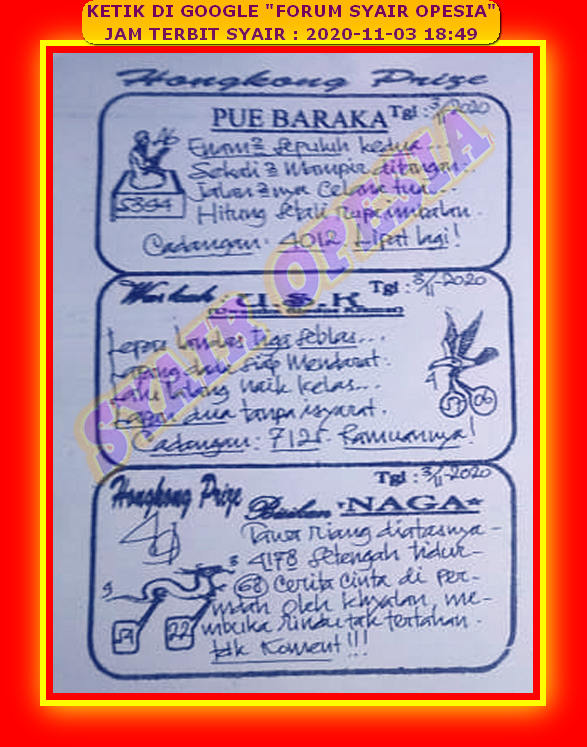 KETIK DI GOOGLE "FORUM SYAIR OPESIA"
JAM TERBIT SYAIR : 2020-11-03 18:49
Hongkong Prize
PUE BARAKA Tgl : 3/11-2020
Enam2 sepuluh kedua...
Sekali2 mampir ditangan..
Jalan2nya Celana tua...
Hitung sekali rupa imbalan.
Cadangan : 4012 Lipat lagi!
5384
U.S.K Tgl : 3/11-2020
Lepas landas tiga seblas...
siap Mendarat.
naik kelas...
dua tanpa isyarat.
Cadangan : 7125. Ramuannya!
4
57
06
SYAIR OPESIA
Tgl : 3/11-2020
Hongkong Prize
Buılan "NAGA"
Tawa riang diatasnya-
4178 setengah tidur-
68 Cerita cinta di per-
indah oleh khyalan, me-
mbuka rindu tak tertahan.
tdk Koment!!!
9
3
59
22